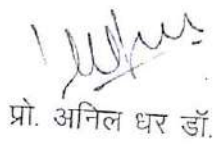 प्रो. अनिल धर डॉ.